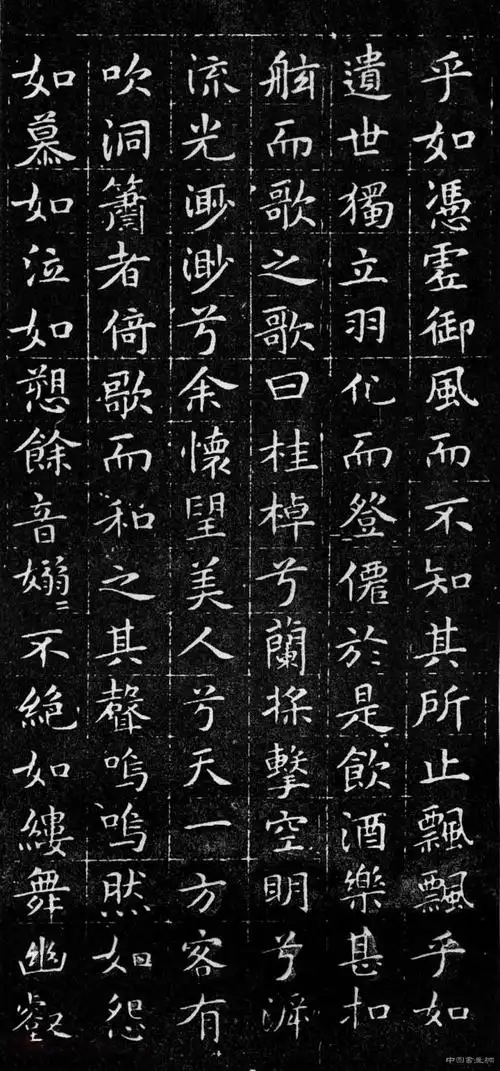 乎如憑虛御風而不知其所止飄飄乎如
遺世獨立羽化而登僊於是飲酒樂甚扣
舷而歌之歌曰桂棹兮蘭槳擊空明兮泝
流光渺渺兮余懷望美人兮天一方客有
吹洞簫者倚歌而和之其聲嗚嗚然如怨
如慕如泣如愬餘音嫋〻不絕如縷舞幽壑